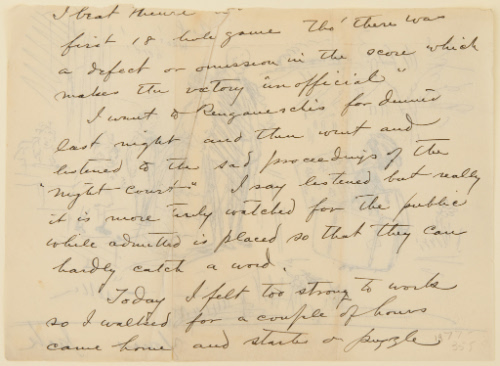 I beat Henri in
first 18 hole game tho' there was
a defect or omission in the score which
makes the victory "unofficial"
I went to for dinner
last night and then went and
listened to the sad proceedings of the
"night court" I say listened but really
it is more truly watched for the public
while admitted is placed so that they can
hardly catch a word.
Today I felt too strong to work
so I walked for a couple of hours
came home and started a puzzle